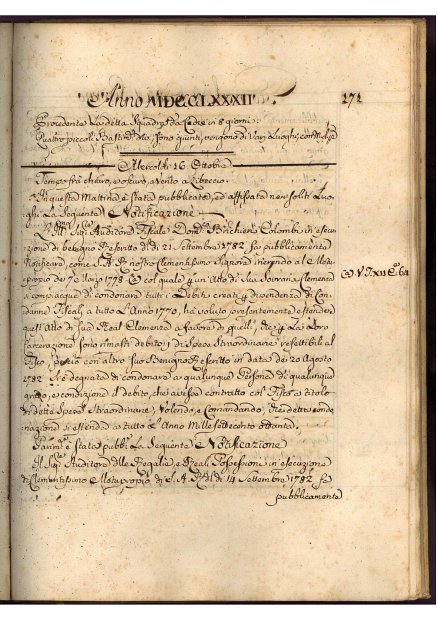 Anno MDCCLXXXII 272
Procedente La detta Squadra da Cadice in 8 giorni:
Quattro piccoli Bastim.ti, sono giunti, vengono di Varj Luoghi, con
Mercoldi 16 Ottobre
Tempo frà chiaro, e oscuro, e vento a Libeccio.
In questa Mattina è stata pubblicata, ed affissata ne' soliti Luo-
ghi La Sequente Notificazione
L'Ill.mo Sig.re Auditore Fiscale Dom.co Brichieri Colombi in esecu-
zione di benigno Rescritto di di 21 Settembre 1782 fa pubblicamente
Notificare, come S.A.R. nostro Clementissimo Signore inerendo al Motu-
proprio dei 7 Marzo 1778 col quale p un Atto di Sua Sovrana Clemenza
si compiacque di condonare tutti i Debiti creati p dipendenza di Con-
danne Fiscali a tutto L'Anno 1770, hà voluto presentemente estendere
quest'Atto di Sua Real Clemenza a favore di quelli, che p La Loro
Carcerazione sono rimasti debitori di Spese Straordinarie respettibili al
Fisco, perciò con altro suo Benigno Rescritto in data dei 20 Agosto
1782 si è degnata di condonare a qualunque Persona di qualunque
grado, e condizione il debito, che avesse contratto col Fisco a titolo
di dette Spese Straordinarie, Volendo, e Comandando, che detta condo-
nazione si estenda a tutto L'Anno Mille Settecento ottanta.
Parim.te è stata pubb.ta La Sequente Notificazione
Il Sig.re Auditore delle Regalie, e Reali Possessioni in esecuzione
di Clementissimo Motuproprio di S.A.R. del di 14 Settembre 1782 fa
pubblicamente